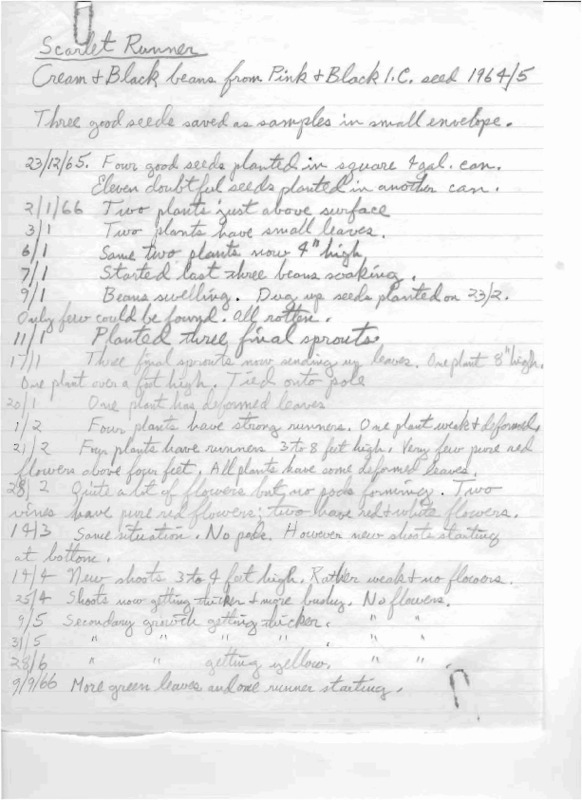 Scarlet Runner
Cream & Black beans from Pink & Black I.C. seed 1964/5
Three good seeds saved as samples in small envelope.
23/12/65. Four good seeds planted in square 4 gal. can.
Eleven doubtful seeds planted in another can.
2/1/66 Two plants just above surface
3/1 Two plants have small leaves.
6/1 Same two plants now 4" high
7/1 Started last three beans soaking.
9/1 Beans swelling. Dug up seeds planted on 23/2.
Only few could be found. All rotten.
11/1 Planted three final sprouts.
17/1 Three final sprouts now sending up leaves. One plant 8" high.
One plant over a foot high. Tied onto pole
20/1 One plant has deformed leaves
1/2 Four plants have strong runners. One plant weak & deformed.
21/2 Four plants have runners 3 to 8 feet high. Very few pure red
flowers above four feet. All plants have some deformed leaves.
28/2 Quite a lot of flowers but no pods forming. Two
vines have pure red flowers; two have red & white flowers.
14/3 Same situation. No pods. However new shoots starting
at bottom.
14/4 New shoots 3 to 4 feet high. Rather weak & no flowers.
25/4 Shoots now getting thicker & more bushy. No flowers.
9/5 Secondary growth getting thicker. " "
31/5 " " " " . " "
28/6 " " getting yellow. " "
9/9/66 More green leaves and one runner starting.